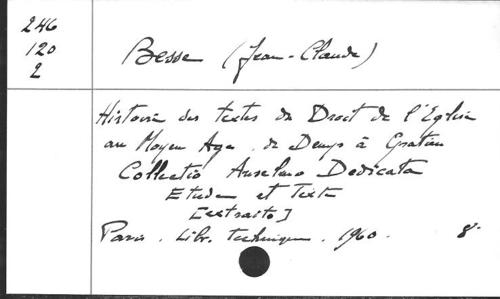 246
120
2
Besse (Jean-Claude)
Histoire des textes du Droit de l'Eglise
au Moyen Age. de Denys à Gratien
Collectio Anselmo Dedicata
Etude et Texte
[extraits]
Paris. Libr. techniques. 1960. 8°